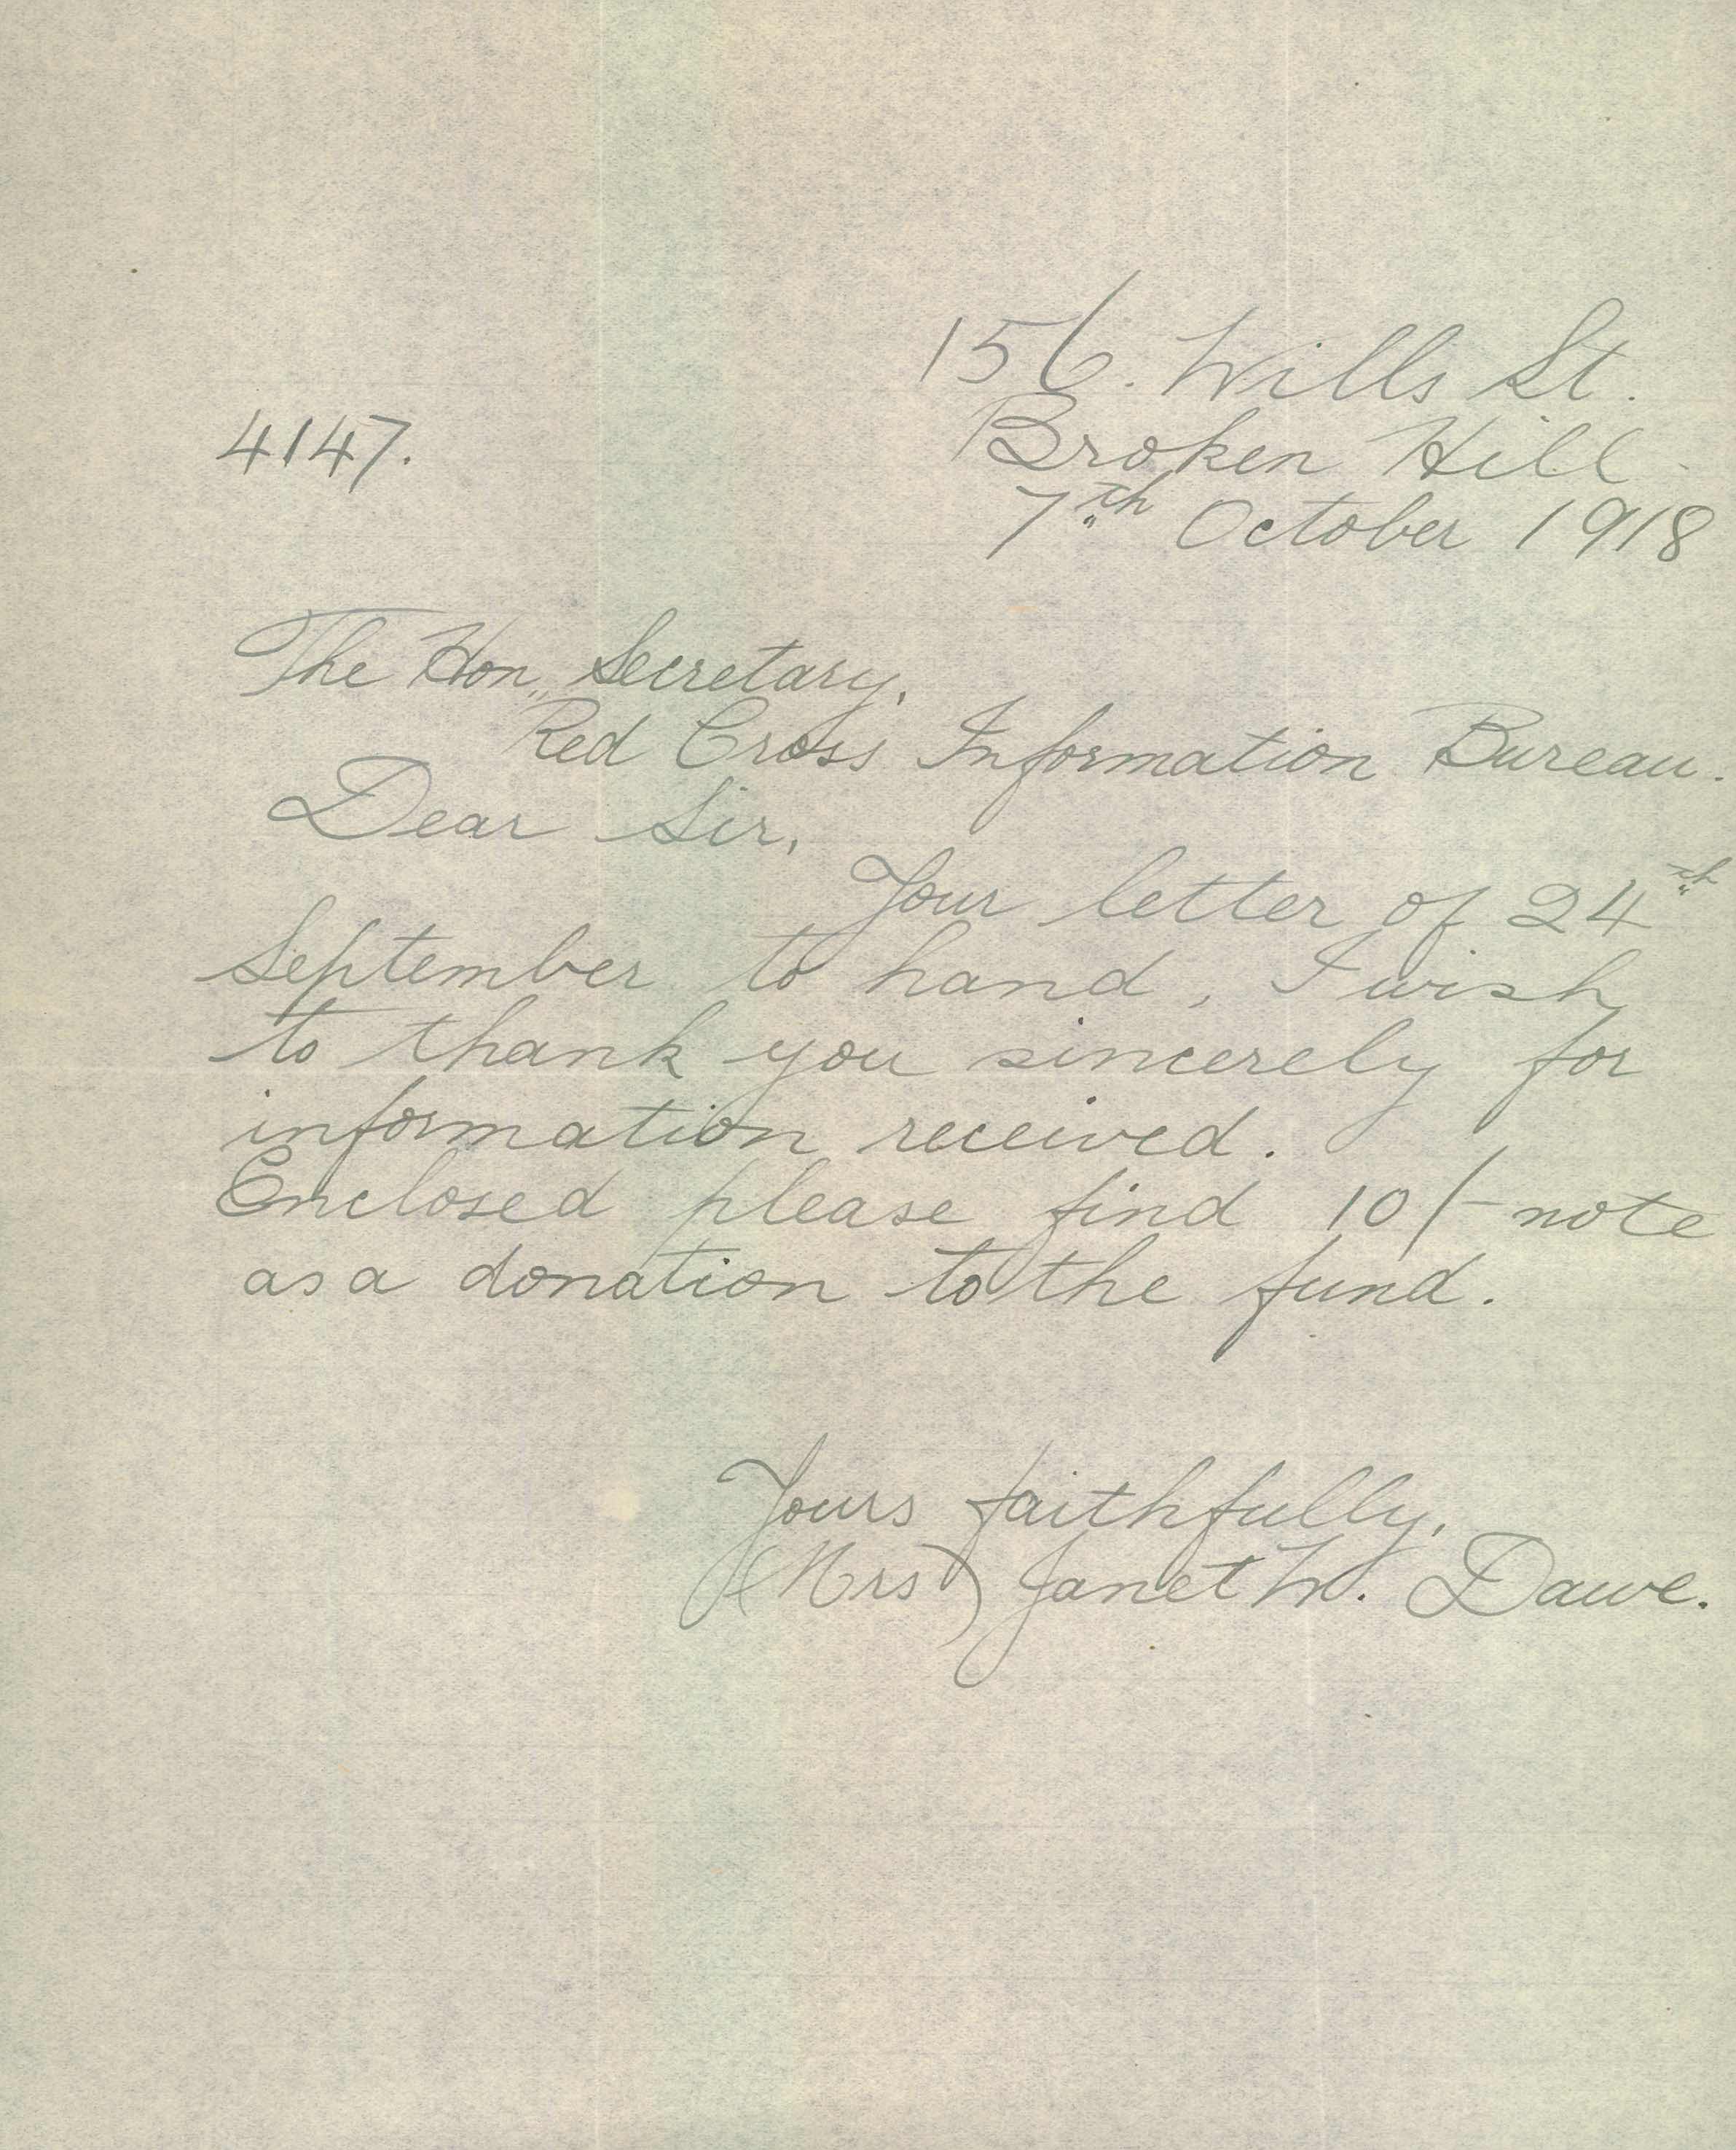 156. Wills St.
Broken Hill.
4147.
7th October 1918
The Hon. Secretary,
Red Cross Information Bureau.
Dear Sir,
Your letter of 24th
September to hand, I wish
to thank you sincerely for
information received.
Enclosed please find 10/- note
as a donation to the fund.
Yours faithfully,
(Mrs) Janet W. Dawe.